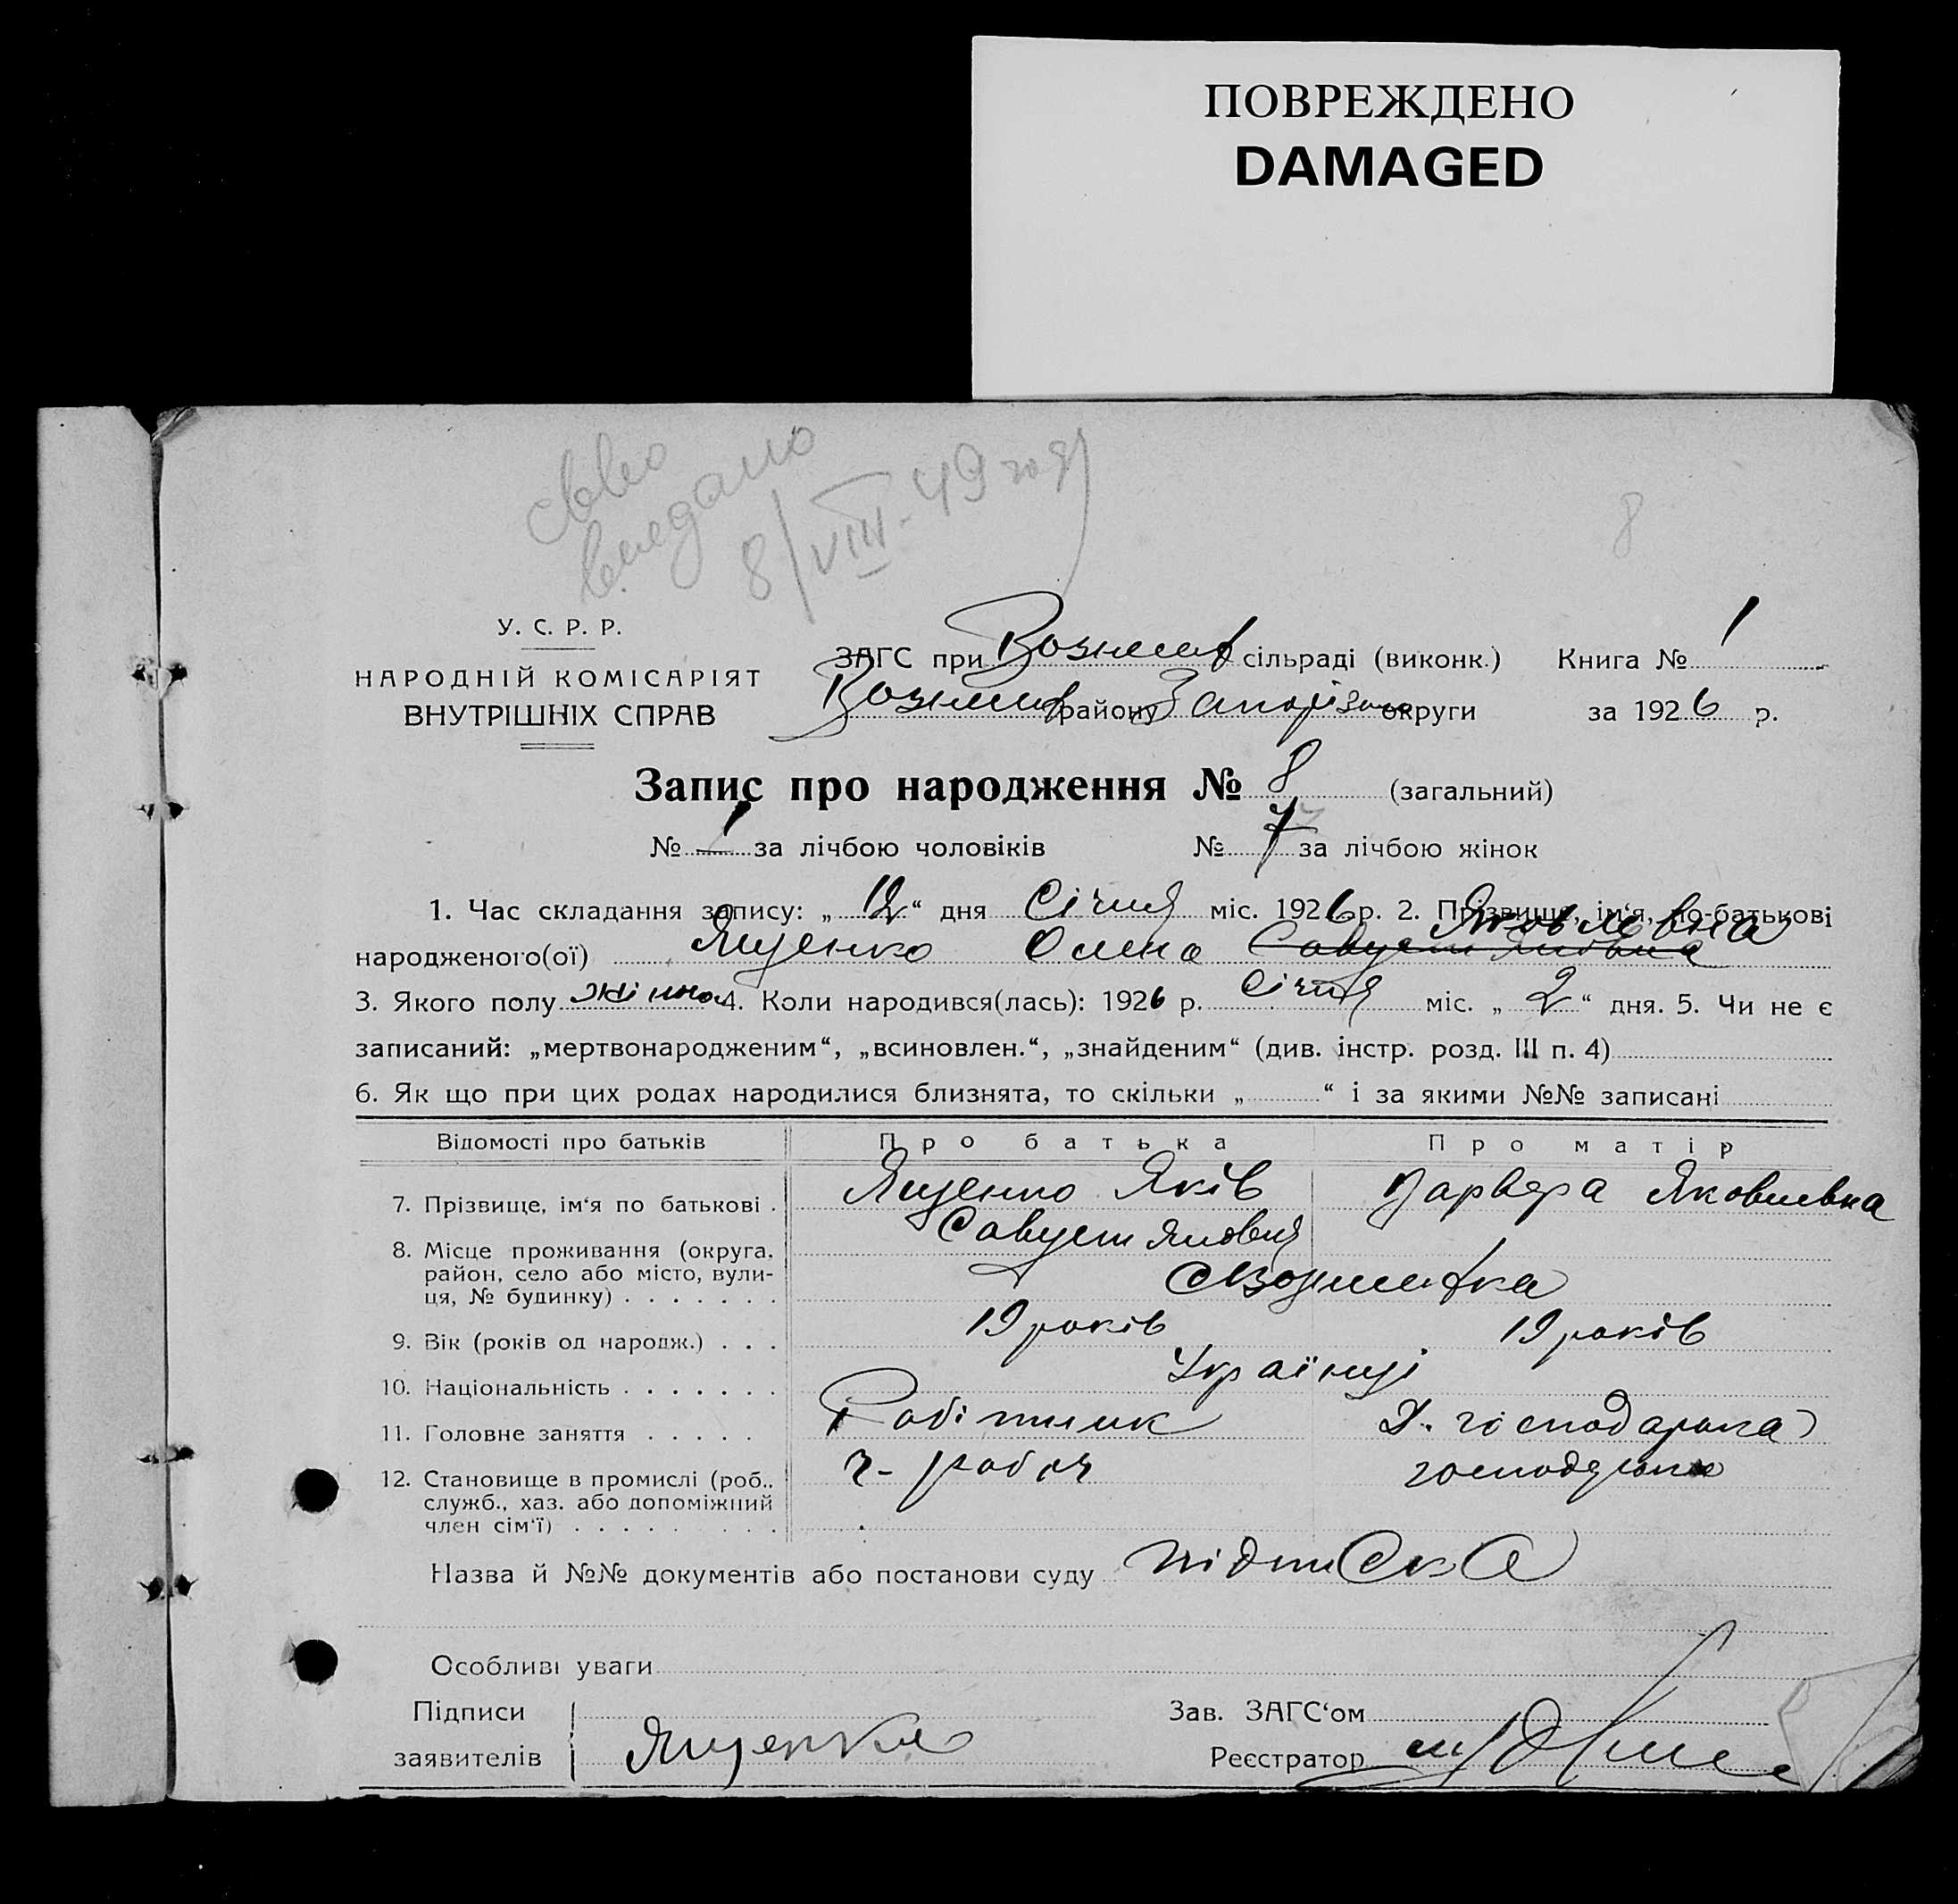 ПОВРЕЖДЕНО
DAMAGED
видано
8/VIII-49 году
8
У. С. Р. Р.
НАРОДНІЙ КОМІСАРІЯТ
ВНУТРІШНІХ СПРАВ
ЗАГС при Вознесен сільраді (виконк.) Книга № 1
Вознесен району Запоріз округи за 1926 р.
Запис про народження № 8 (загальний)
№ за лічбою чоловіків № 7 за лічбою жінок
1. Час складання запису: „12“ дня Січня міс. 1926 р. 2. Прізвище, ім‘я, по-батькові
Яковлевна
народженого(ої) Ященко Олена
3. Якого полу жіноч 4. Коли народився(лась): 1926 р. Січня міс. „2“ дня. 5. Чи не є
записаний: „мертвонародженим“, „всиновлен.“, „знайденим“ (див. інстр. розд. III п. 4)
6. Як що при цих родах народилися близнята, то скільки „ “ і за якими №№ записані
Відомості про батьків Про батька Про матір
7. Прізвище, ім‘я по батькові . Ященко Яків Варвара Яковлевна
8. Місце проживання (округа,
район, село або місто, вули-
ця, № будинку)
9. Вік (років од народж.) . . . 19 років 19 років
10. Національність Українці
11. Головне заняття Робітник Д. господарка
12. Становище в промислі (роб.,
служб., хаз. або допоміжний
член сім‘ї)
Назва й №№ документів або постанови суду підписка
Особливі уваги
Підписи Зав. ЗАГС‘ом
заявителів Ященко Реєстратор